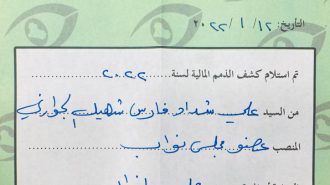 التاريخ: ١٢ / ١ / ٢٠٢٢
تم استلام كشف الذمم المالية لسنة ٢٠٢٢
من السيد علي شداد فارس
المنصب عضو مجلس نواب